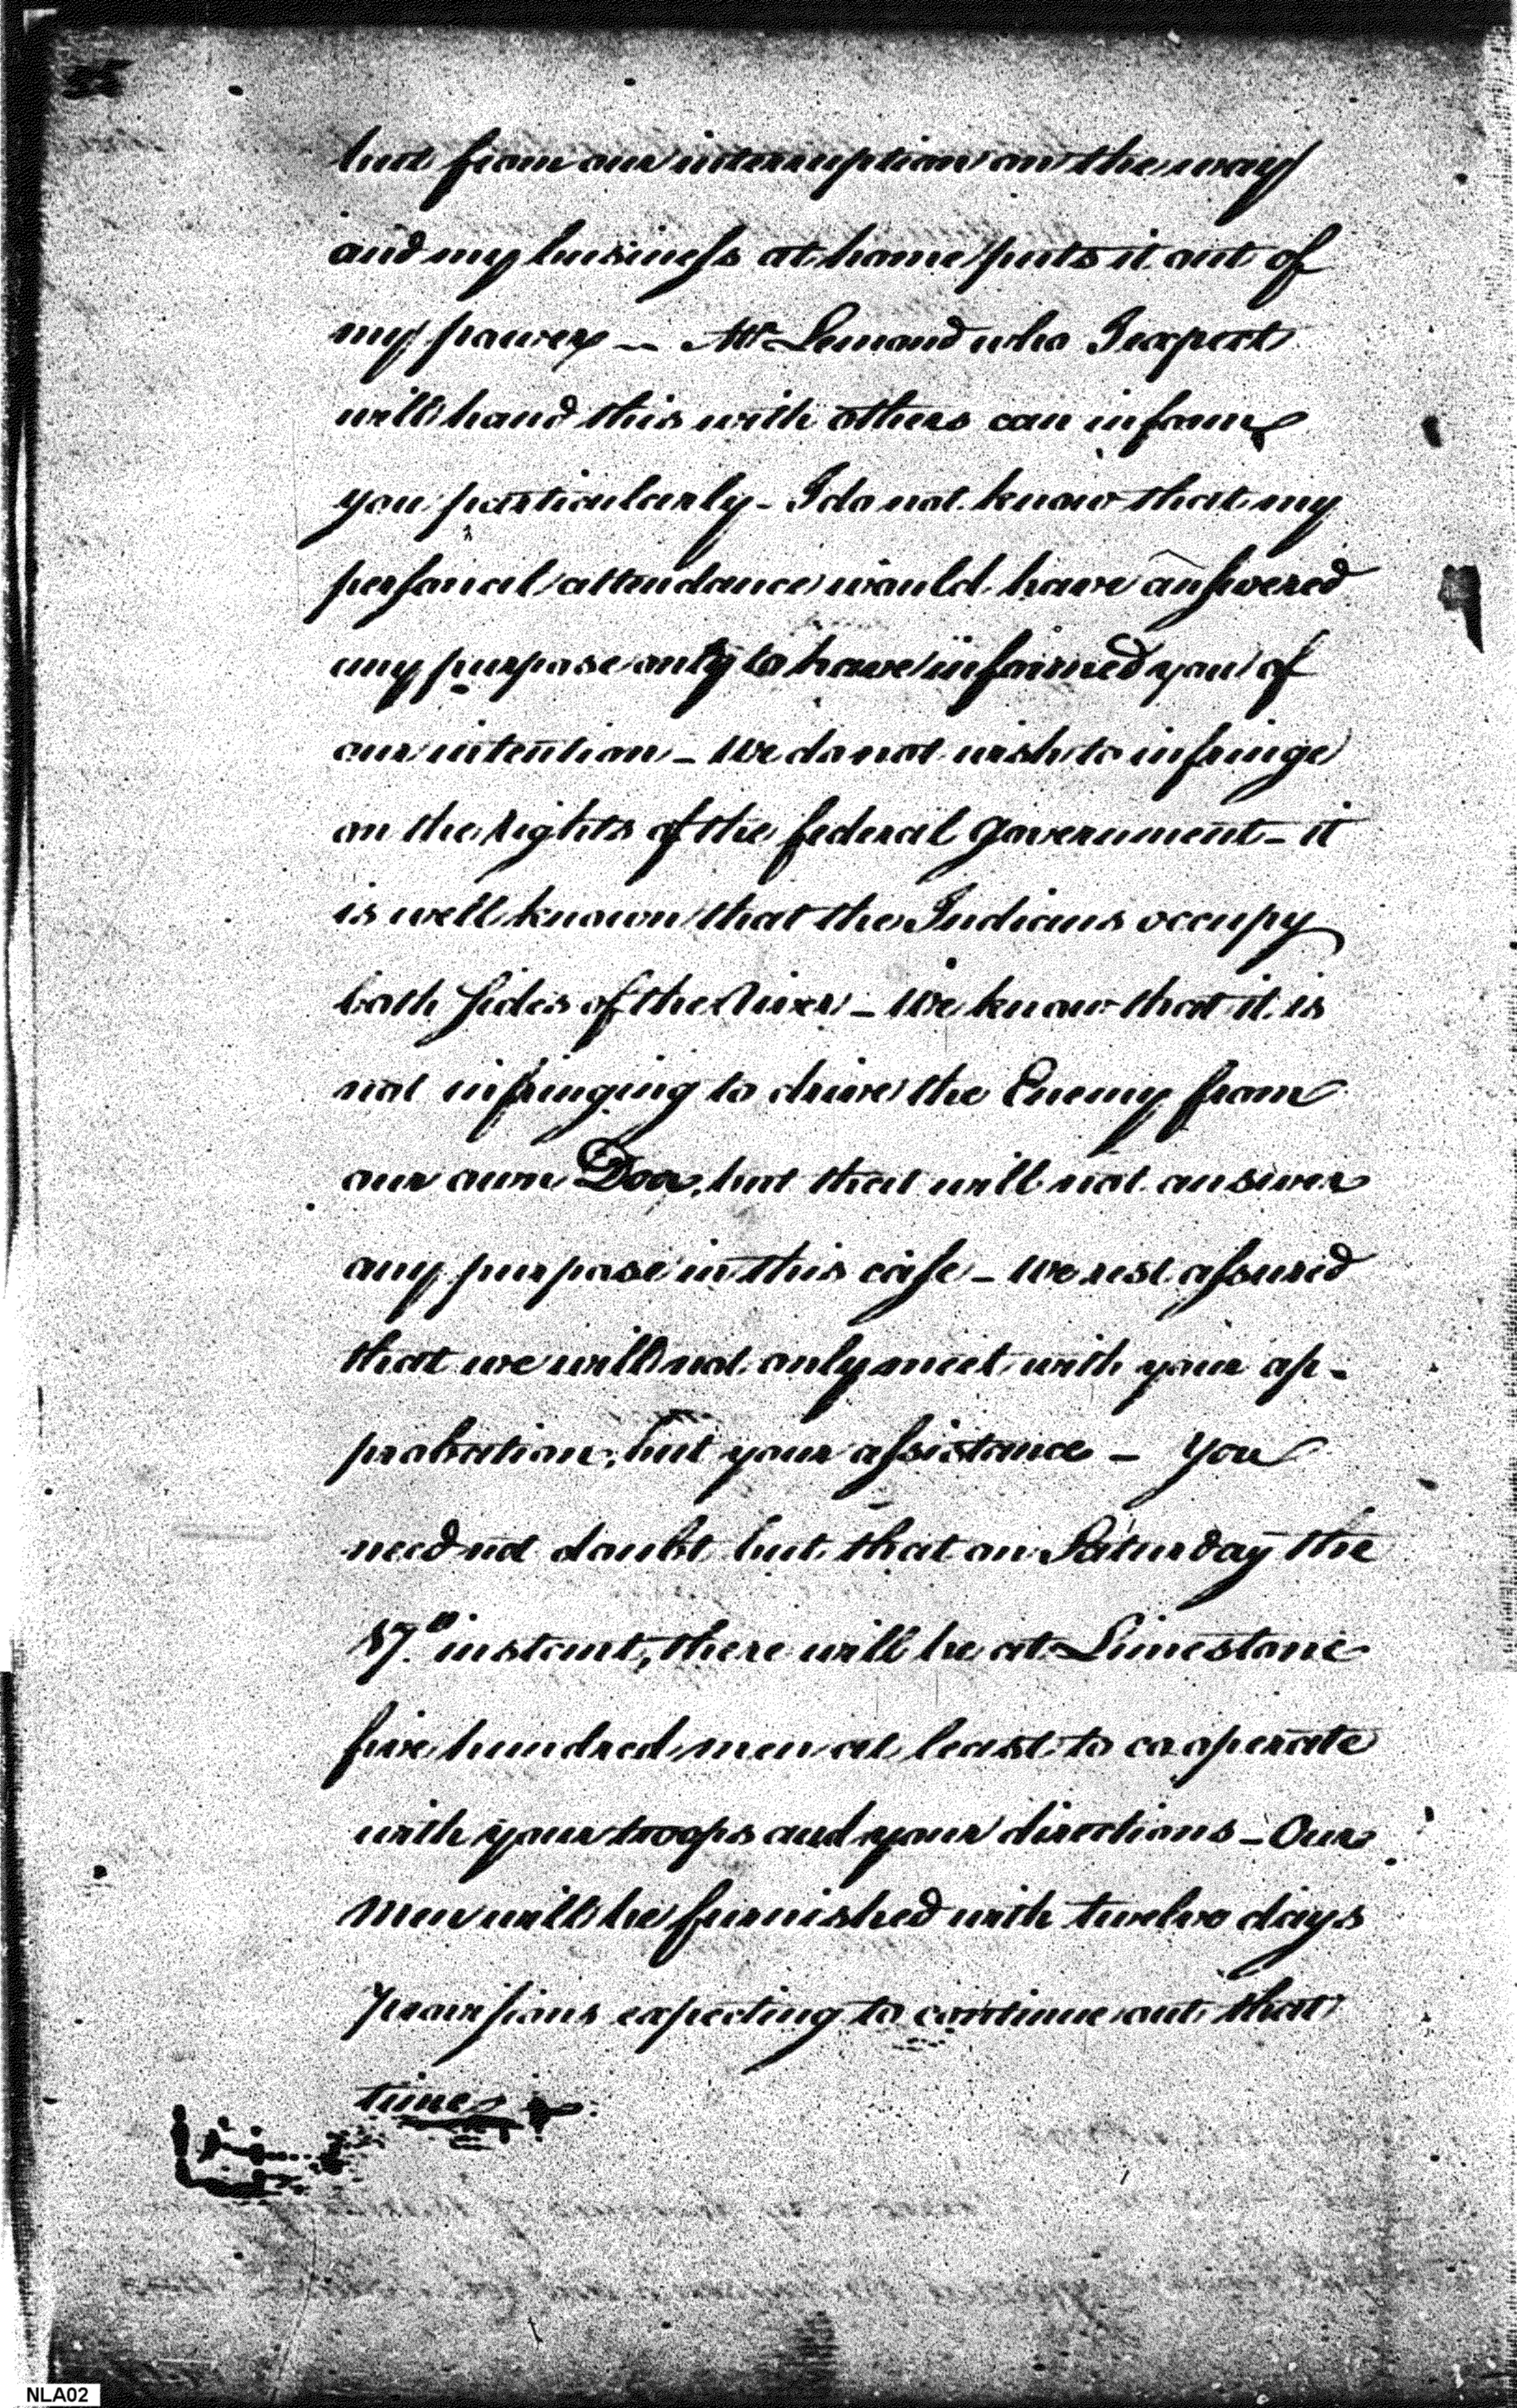 but from our interruption on the way
and my business at home puts it out of
my power — Mr Lemond who I expect
will hand this with others can inform
you particularly - I do not know that my
personal attendance would have answered
any purpose only to have informed you of
our intention - We do not wish to infringe
on the rights of the federal government - it
is well known that the Indians occupy
both sides of the River - We know that it is
not infringing to drive the Enemy from
our own Door, but that will not answer
any purpose in this case - We rest assured
that we will not only meet with your ap-
probation, but your assistance - You
need not doubt but that on Saturday the
17th instant, there will be at Limestone
five hundred men at least to cooperate
with your troops and your directions - Our
Men will be furnished with twelve days
provisions expecting to continue out that
time
NLA02